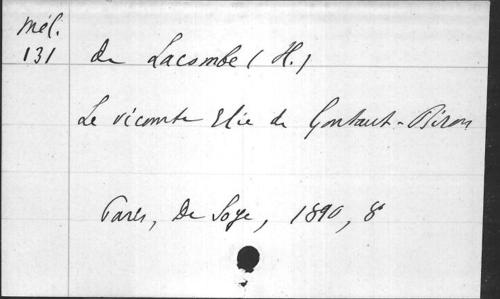 Mél.
131
de Lacombe (H.)
Le vicomte Elie de Gontaut-Biron
Paris, De Soye, 1890, 8°